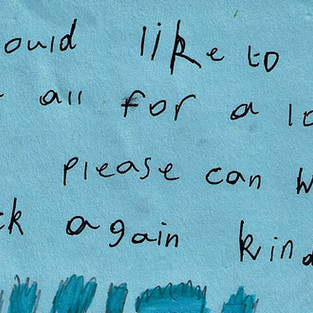 ould like to
all for a lo
please can w
ck again kind